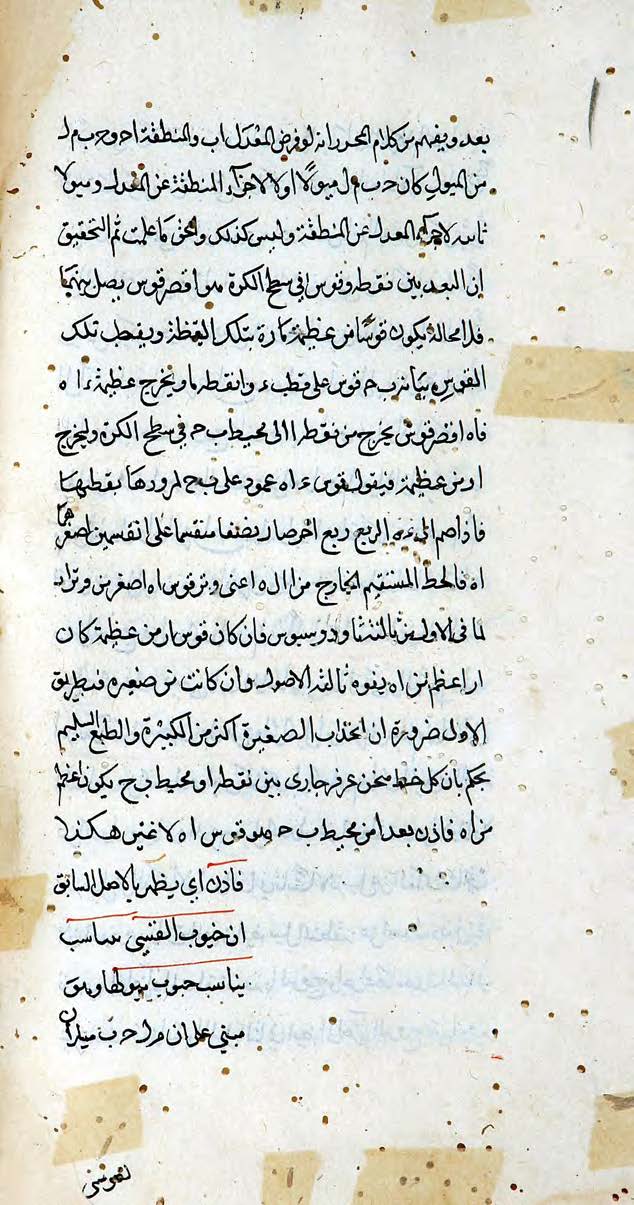 بعد ويفهم من كلام المحرر انه لو فرض المعدل اب والمنطقة اح و ح ب م ل
من الميول كان ح ب م ل ميولا اولا لاجزاء المنطقة عن المعدل وميولا
ثانيه لاجزاء المعدل عن المنطقة وليس كذلك والحق ما علمت ثم التحقيق
ان البعد بين نقطه وقوس في سطح الكرة هو اقصر قوس يصل بينهما
فلا محالة يكون قوسا من عظيمة مارة بتلك النقطة وبقطب تلك
القوس ب ح قوس على قطب ء وا نقطه ما ويخرج عظيمة ء ا ه
فاه اقصر قوس يخرج من نقطه ا الى محيط ب ح في سطح الكرة وليخرج
ار من عظيمة فيقول قوس ء اه عمود على ب ح لمرورها بقطبها
فاذا ضم الى ء ه الربع ربع اخر صار نصفا منقسما على ا بقسمين اصغرهما
اه فالخط المستقيم الخارج من ا الى ه اعنى وتر قوس اه اصغر من وتر ار
لما في الاولى من ثالثة ثاودوسيوس فان كان قوس ار من عظيمة كان
ار اعظم من اه بقوه ثالثه الاصول وان كانت من صغيره فبطريق
الاولى ضرورة ان احداب الصغيرة اكثر من الكبيرة والطبع السليم
يحكم بان كل خط منحن غير جارى بين نقطه ا و محيط ب ح يكون اعظم
من اه فاذن بعد ا من محيط ب ح هو قوس اه لا غير هكذا
فاذن اي يظهر بالاصل السابق
ان جيوب القسي
يناسب جيوب ميولها
مبني على ان م ا ح ب ميلان